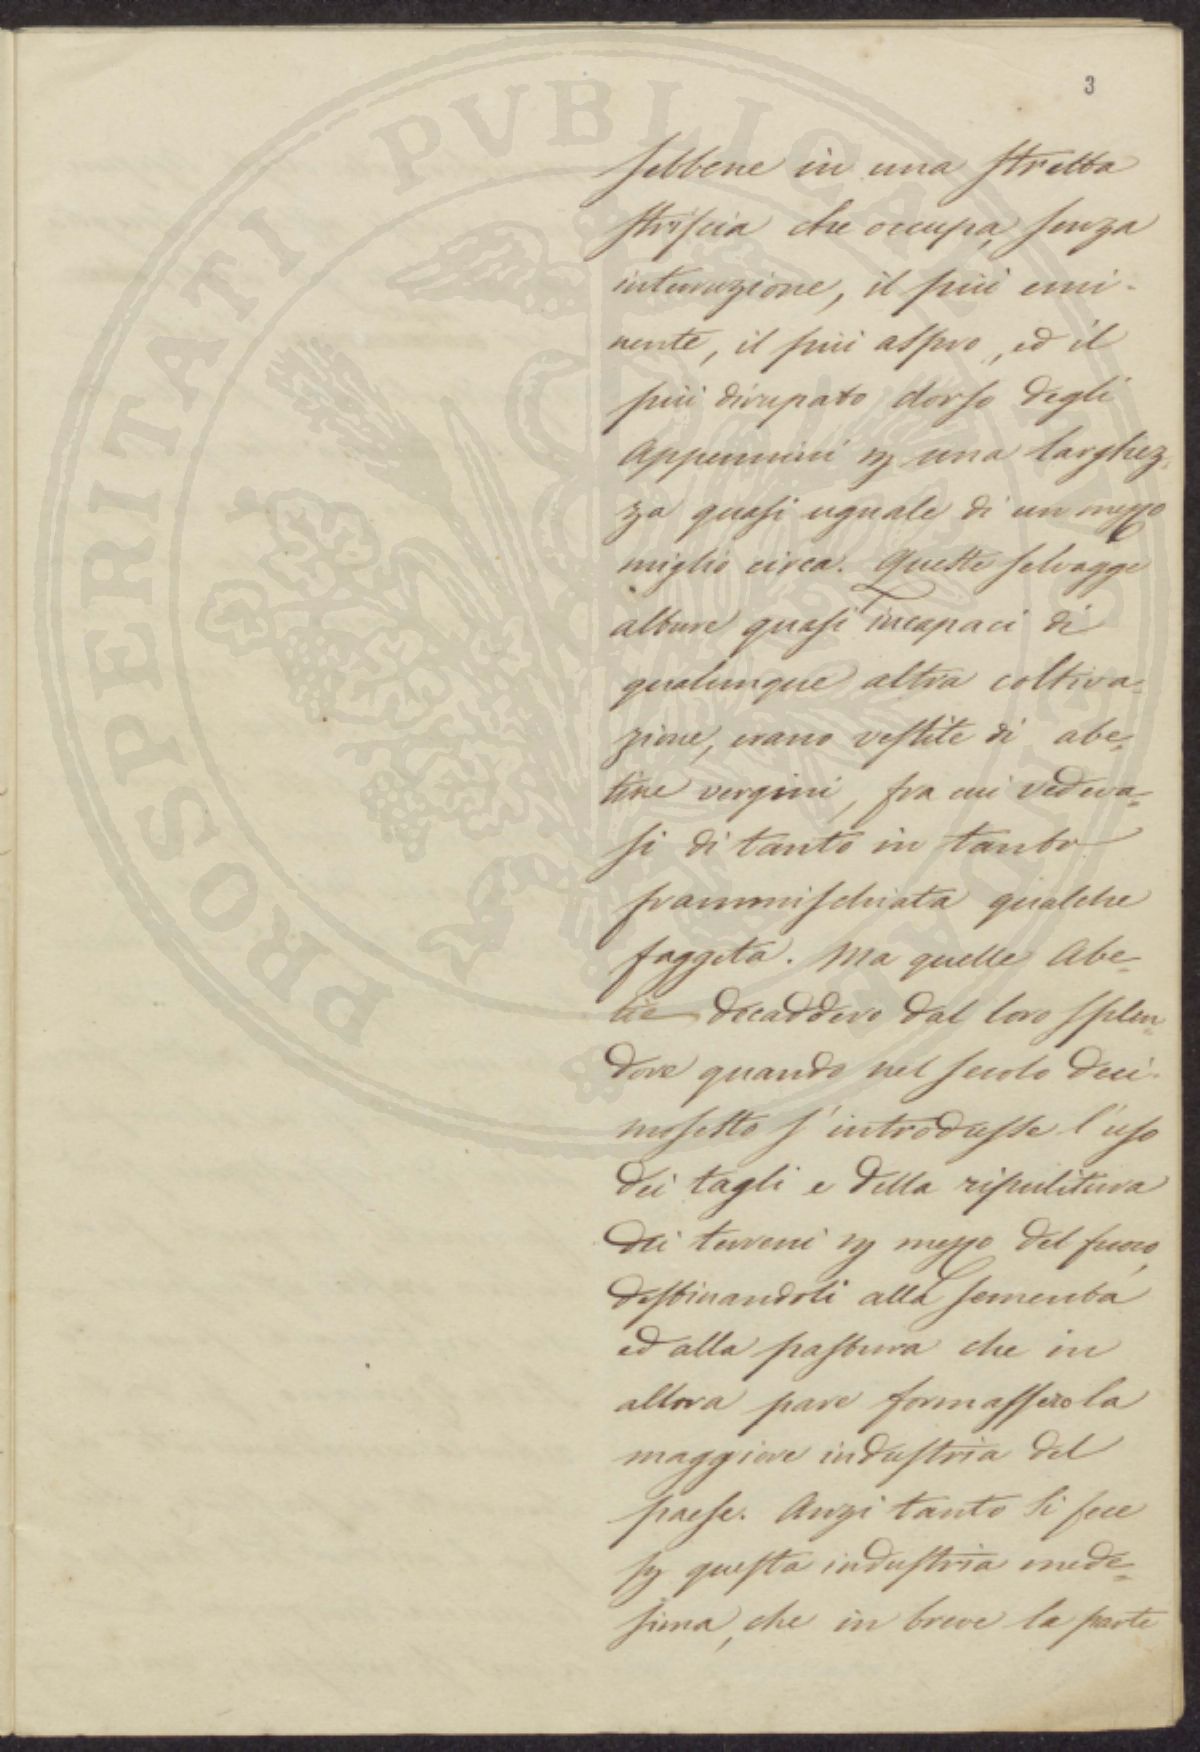 3
sebbene in una stretta
striscia che occupa, senza
interruzione, il più emi-
nente, il più aspro, ed il
più dirupato dorso degli
Appennini per una larghez-
za quasi uguale di un mezzo
miglio circa. Queste selvagge
alture quasi incapaci di
qualunque altra coltiva-
zione, erano vestite di abe-
tine vergini, fra cui vedeva-
si di tanto in tanto
frammischiata qualche
faggeta. Ma quelle Abe-
tie decaddero dal loro splen-
dore quando nel secolo deci-
mosesto s'introdusse l'uso
dei tagli e della ripulitura
dei terreni per mezzo del fuoco,
destinandoli alla sementa
ed alla pastura che in
allora pare formassero la
maggiore industria del
paese. Anzi tanto si fece
per questa industria mede-
sima, che in breve la parte
PROSPERITATI PVBLICAE